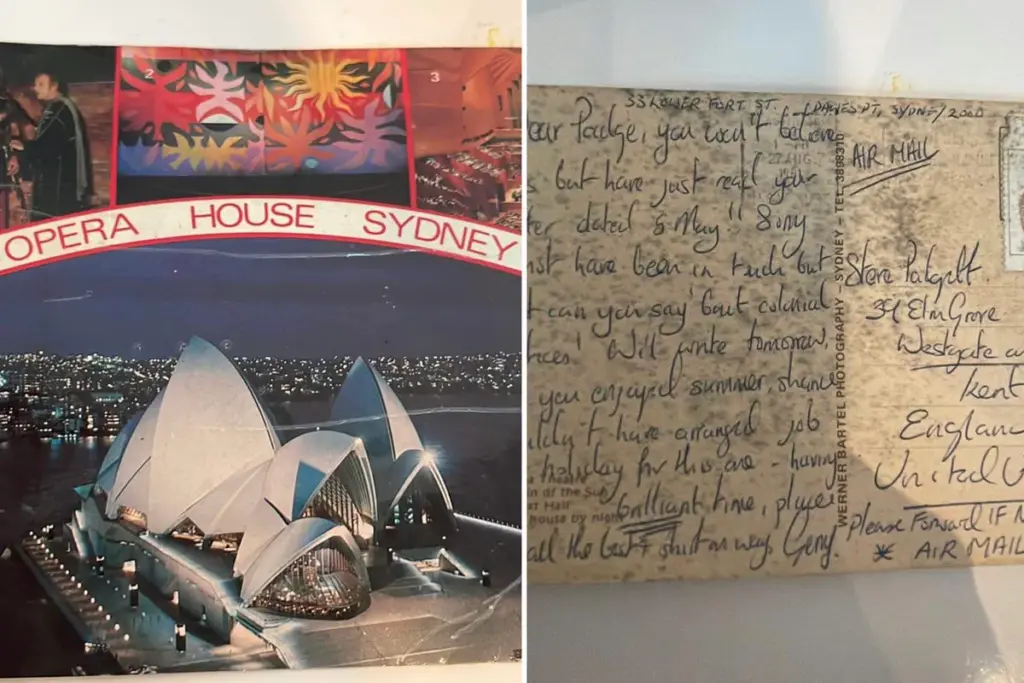 2
3
OPERA HOUSE SYDNEY
33 LOWER FORT ST. DAWES PT, SYDNEY 2000
ear Padge, you won't believe
s but have just read your
ter dated 5 May! Sorry
st have been in touch but
t can you say 'bout colonial
ices' Will write tomorrow,
you enjoyed summer, shame
uldn't have arranged job
holiday for this one - having
brilliant time, place
all the best &
Gerry.
n of the Sun
rt Hall
house by night
WERNER BARTEL PHOTOGRAPHY - SYDNEY - TEL.
AIR MAIL
Steve Padgett.
Elm Grove
Westgate
Kent
Englan
United
please Forward IF
* AIR MAIL